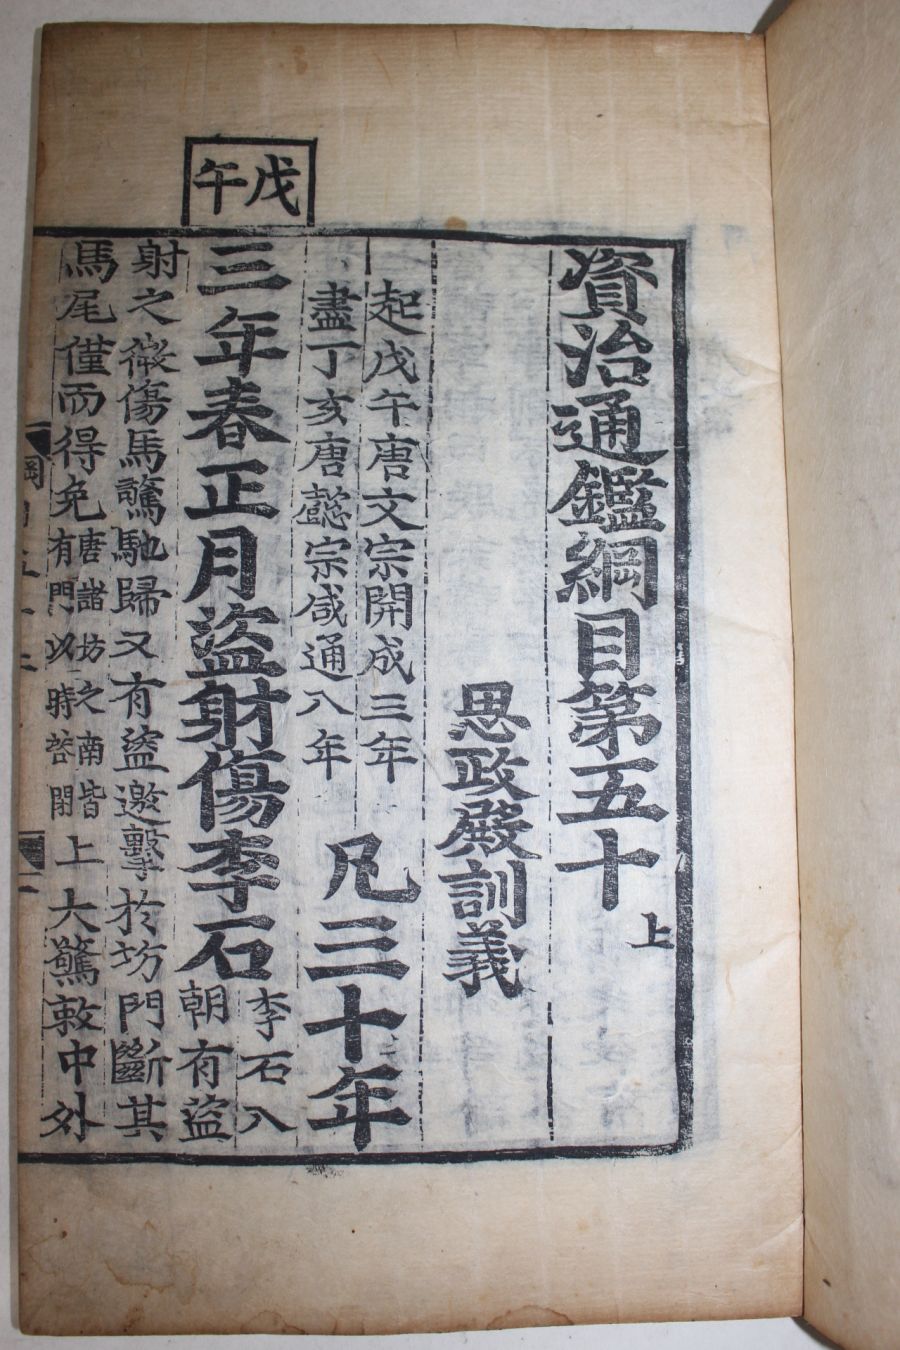 資治通鑑綱目第五十上
思政殿訓義
起戊午唐文宗開成三年
盡丁亥唐懿宗咸通八年
凡三十年
戊午
三年春正月盜射傷李石
李石入
朝有盜
射之微傷馬驚馳歸又有盜邀擊於坊門斷其
馬尾僅而得免
唐諸坊之南皆
有門以時啓閉
上大驚敕中外